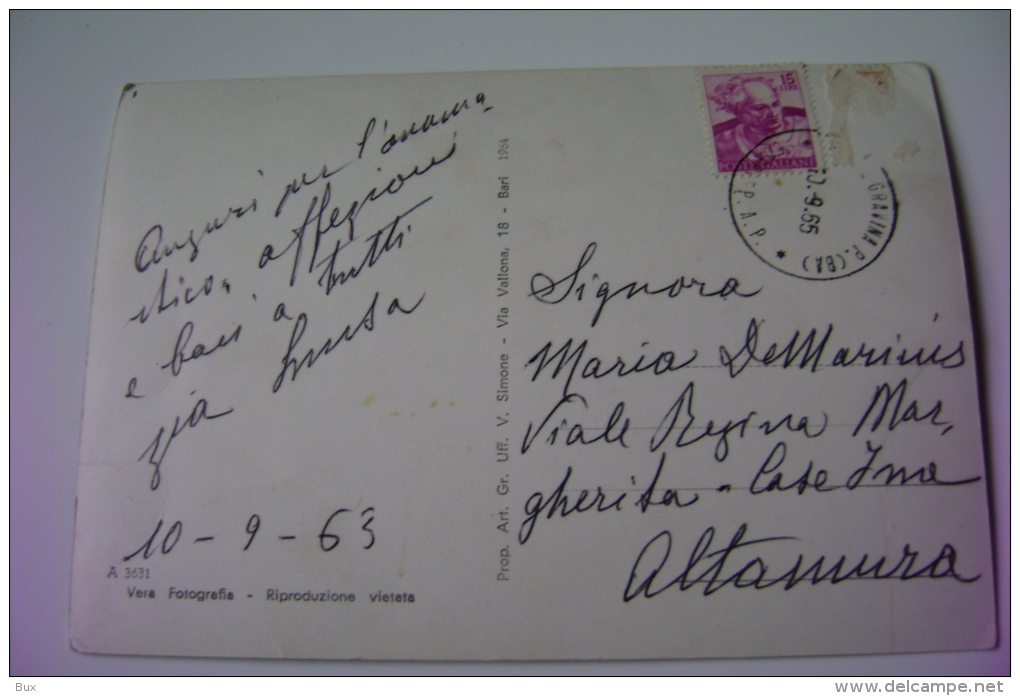 Auguri per l'onoma,
stico, affezioni
e baci a tutti
zia Giusta
10 - 9 - 63
A 3631
Vera Fotografia - Riproduzione vietata
Prop. Art. Gr. Uff. V. Simone - Via Vallona, 18 - Bari 1964
15
LIRE
POSTE ITALIANE
GRAVINA P. (BA)
.9.65
A. P.
Signora
Maria DeMarinis
Viale Regina Mar,
gherita - Case Ina
Altamura
Bux
www.delcampe.net